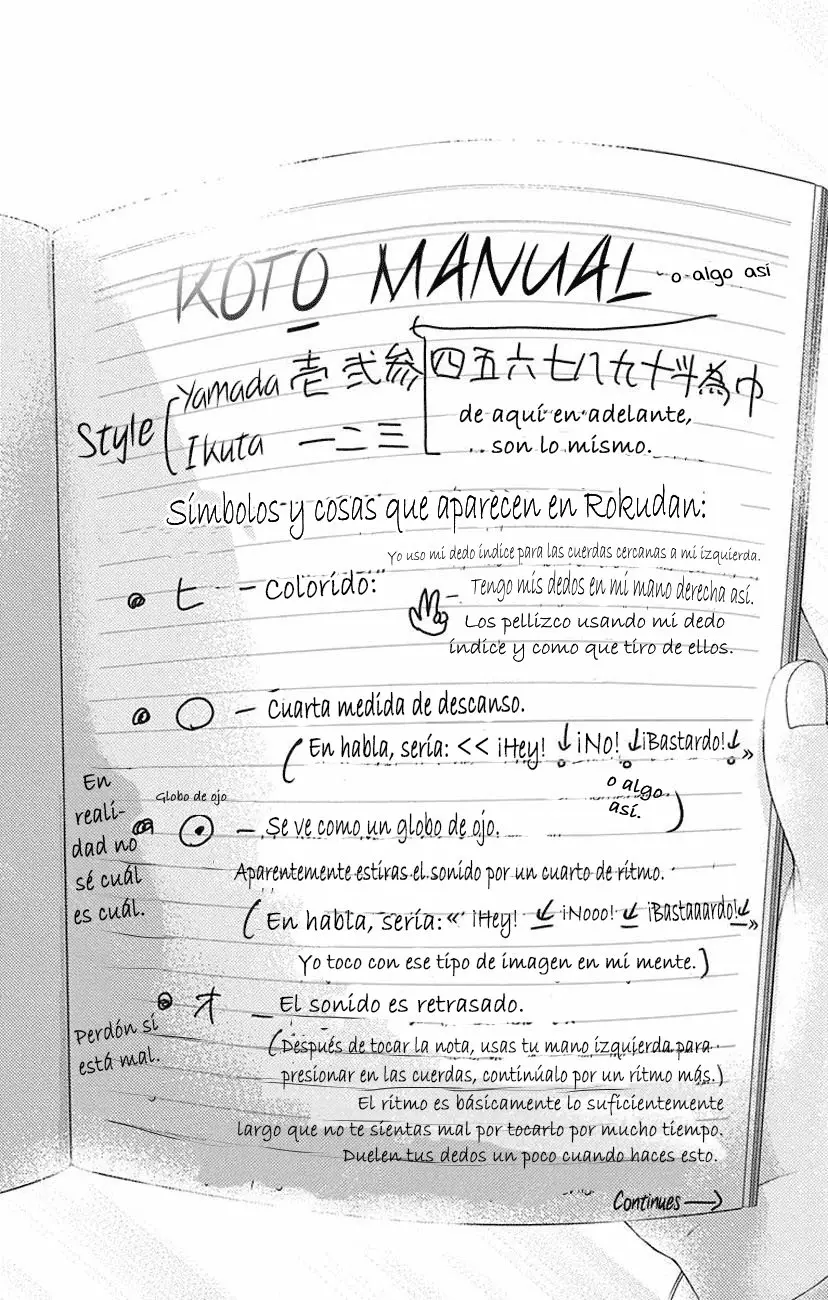 KOTO MANUAL - o algo así
Style
Yamada 壱 弐 参 四五六七八九十斗為巾
Ikuta 一 二 三
de aquí en adelante,
son lo mismo.
Símbolos y cosas que aparecen en Rokudan:
Yo uso mi dedo índice para las cuerdas cercanas a mi izquierda.
ヒ - Colorido:
- Tengo mis dedos en mi mano derecha así.
Los pellizco usando mi dedo
índice y como que tiro de ellos.
○ - Cuarta medida de descanso.
(En habla, sería: << ¡Hey! ↓ ¡No! ↓ ¡Bastardo! ↓ »
o algo
así.)
En
reali-
dad no
sé cuál
es cuál.
Globo de ojo
⊙ - Se ve como un globo de ojo.
Aparentemente estiras el sonido por un cuarto de ritmo.
(En habla, sería: « ¡Hey! ↙ ¡Nooo! ↙ ¡Bastaaardo! ↙ »
Yo toco con ese tipo de imagen en mi mente.)
オ - El sonido es retrasado.
Perdón si
está mal.
(Después de tocar la nota, usas tu mano izquierda para
presionar en las cuerdas, continúalo por un ritmo más.)
El ritmo es básicamente lo suficientemente
largo que no te sientas mal por tocarlo por mucho tiempo.
Duelen tus dedos un poco cuando haces esto.
Continues →